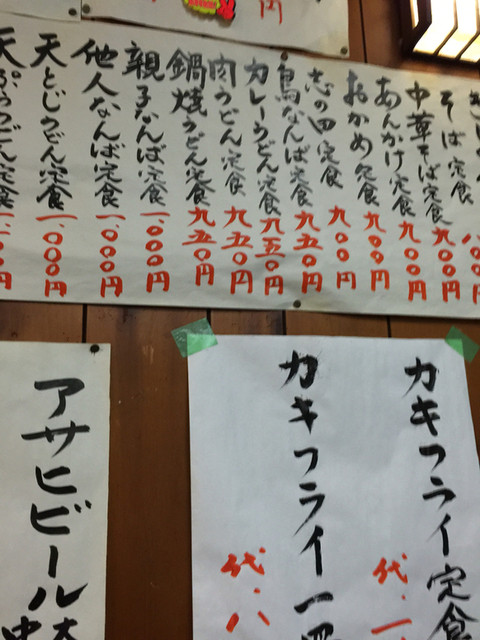 円
そば定食 八〇〇円
中華そば定食 九〇〇円
あんかけ定食 九〇〇円
おかめ定食 九〇〇円
志の田定食 九〇〇円
鳥なんば定食 九五〇円
カレーうどん定食 九五〇円
肉うどん定食 九五〇円
鍋焼うどん定食 九五〇円
親子なんば定食 一、〇〇〇円
他人なんば定食 一、〇〇〇円
天とじうどん定食 一、〇〇〇円
天ぷらうどん定食 一、〇〇〇円
カキフライ定食
代、一
カキフライ一皿
代、八
アサヒビール大
中